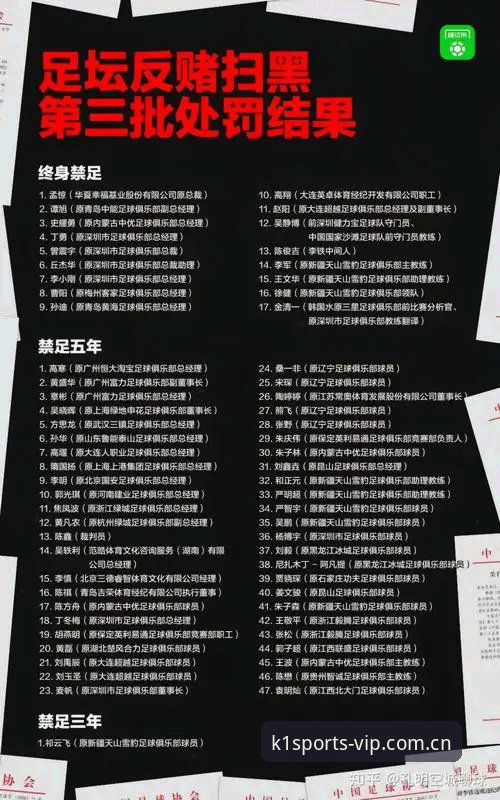 足坛反赌扫黑
第三批处罚结果
终身禁足
1. 孟惊（华夏幸福基业股份有限公司原总裁）
2. 谭旭（原青岛中能足球俱乐部副总经理）
3. 史耀勇（原内蒙古中优足球俱乐部总经理）
4. 丁勇（原深圳市足球俱乐部总经理）
5. 曾震宇（原深圳市足球俱乐部总裁）
6. 丘杰华（原深圳市足球俱乐部总裁助理）
7. 李小刚（原深圳市足球俱乐部总经理）
8. 曹阳（原梅州客家足球俱乐部总经理）
9. 孙迪（原青岛黄海足球俱乐部总经理）
10. 高翔（大连英卓体育经纪开发有限公司职工）
11. 赵阳（原大连超越足球俱乐部总经理及副董事长）
12. 吴静博（前深圳健力宝足球队守门员、
中国国家沙滩足球队前守门员教练）
13. 陈俊吉（李铁中间人）
14. 李军（原新疆天山雪豹足球俱乐部主教练）
15. 王文华（原新疆天山雪豹足球俱乐部助理教练）
16. 徐健（原新疆天山雪豹足球俱乐部领队）
17. 金清一（韩国水原三星足球俱乐部前比赛分析官、
原深圳市足球俱乐部教练翻译）
禁足五年
1. 高寒（原广州恒大淘宝足球俱乐部总经理）
2. 黄盛华（原广州富力足球俱乐部副董事长）
3. 章彬（原广州富力足球俱乐部总经理）
4. 吴晓晖（原上海绿地申花足球俱乐部董事长）
5. 方思龙（原武汉三镇足球俱乐部总经理）
6. 孙华（原山东鲁能泰山足球俱乐部总经理）
7. 高堰（原大连人职业足球俱乐部总经理）
8. 隋国扬（原上海上港集团足球俱乐部总经理）
9. 李明（原北京国安足球俱乐部总经理）
10. 郭光琪（原河南建业足球俱乐部总经理）
11. 焦凤波（原浙江绿城足球俱乐部总经理）
12. 黄凡农（原杭州绿城足球俱乐部副总经理）
13. 陈鑫（裁判员）
14. 吴轶利（范皓体育文化咨询服务（湖南）有限
公司总经理）
15. 李慎（北京三德睿智体育文化有限公司经理）
16. 陈祺（青岛吉荣体育经纪有限公司执行董事）
17. 陈方舟（原内蒙古中优足球俱乐部球员）
18. 丁冬梅（原深圳市足球俱乐部总经理）
19. 胡燕明（原保定英利易通足球俱乐部竞赛部职工）
20. 黄磊（原湖北楚风合力足球俱乐部球员）
21. 刘禹辰（原大连超越足球俱乐部球员）
22. 刘玉圣（原大连超越足球俱乐部球员）
23. 麦帆（原深圳市足球俱乐部董事长）
24. 桑一非（原辽宁足球俱乐部球员）
25. 宋琛（原辽宁足球俱乐部球员）
26. 陶婷婷（原江苏常奥体育发展股份有限公司董事长）
27. 熊飞（原辽宁足球俱乐部球员）
28. 张野（原辽宁足球俱乐部球员）
29. 朱庆伟（原保定英利易通足球俱乐部竞赛部负责人）
30. 朱子林（原内蒙古中优足球俱乐部球员）
31. 刘鑫垚（原昆山足球俱乐部总经理）
32. 和正元（原新疆天山雪豹足球俱乐部助理教练）
33. 严明超（原新疆天山雪豹足球俱乐部助理教练）
34. 严智宇（原新疆天山雪豹足球俱乐部球员）
35. 吴鹏（原新疆天山雪豹足球俱乐部球员）
36. 杨博宇（原深圳市足球俱乐部球员）
37. 刘毅（原黑龙江冰城足球俱乐部球员）
38. 尼扎木丁－阿凡提（原黑龙江冰城足球俱乐部球员）
39. 贾晓琛（原石家庄功夫足球俱乐部球员）
40. 姜文骏（原昆山足球俱乐部球员）
41. 朱子森（原新疆天山雪豹足球俱乐部球员）
42. 王敬平（原浙江毅腾足球俱乐部球员）
43. 张松（原浙江毅腾足球俱乐部球员）
44. 郭子超（原江西联盛足球俱乐部球员）
45. 王波（原内蒙古中优足球俱乐部主教练）
46. 陈懋（原贵州恒智诚足球俱乐部主教练）
47. 袁明灿（原江西北大门足球俱乐部球员）
禁足三年
1.祁云飞（原新疆天山雪豹足球俱乐部球员）
k1sports-vip.com.cn